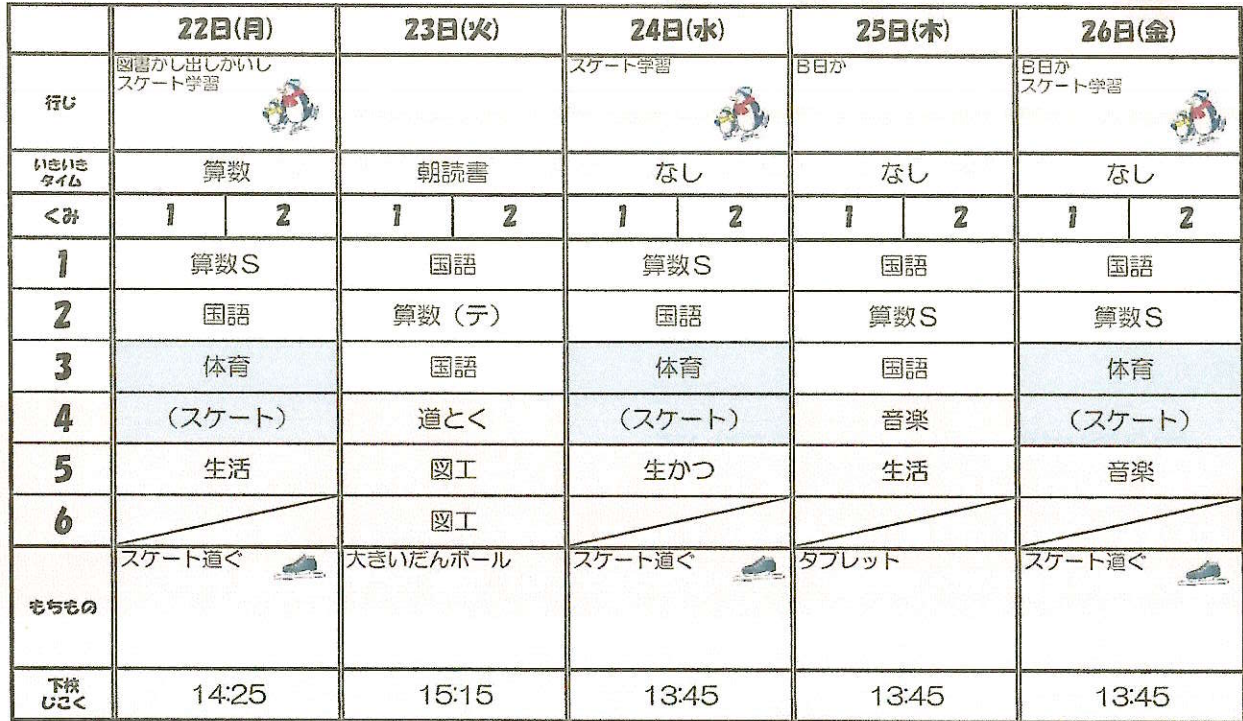 22日(月) 23日(火) 24日(水) 25日(木) 26日(金)
行じ
図書かし出しかいし
スケート学習
スケート学習
B日か
B日か
スケート学習
いきいき
タイム
算数 朝読書 なし なし なし
くみ 1 2 1 2 1 2 1 2 1 2
1 算数S 国語 算数S 国語 国語
2 国語 算数(テ) 国語 算数S 算数S
3 体育 国語 体育 国語 体育
4 (スケート) 道とく (スケート) 音楽 (スケート)
5 生活 図工 生かつ 生活 音楽
6 図工
もちもの スケート道ぐ 大きいだんボール スケート道ぐ タブレット スケート道ぐ
下校
じこく
14:25 15:15 13:45 13:45 13:45